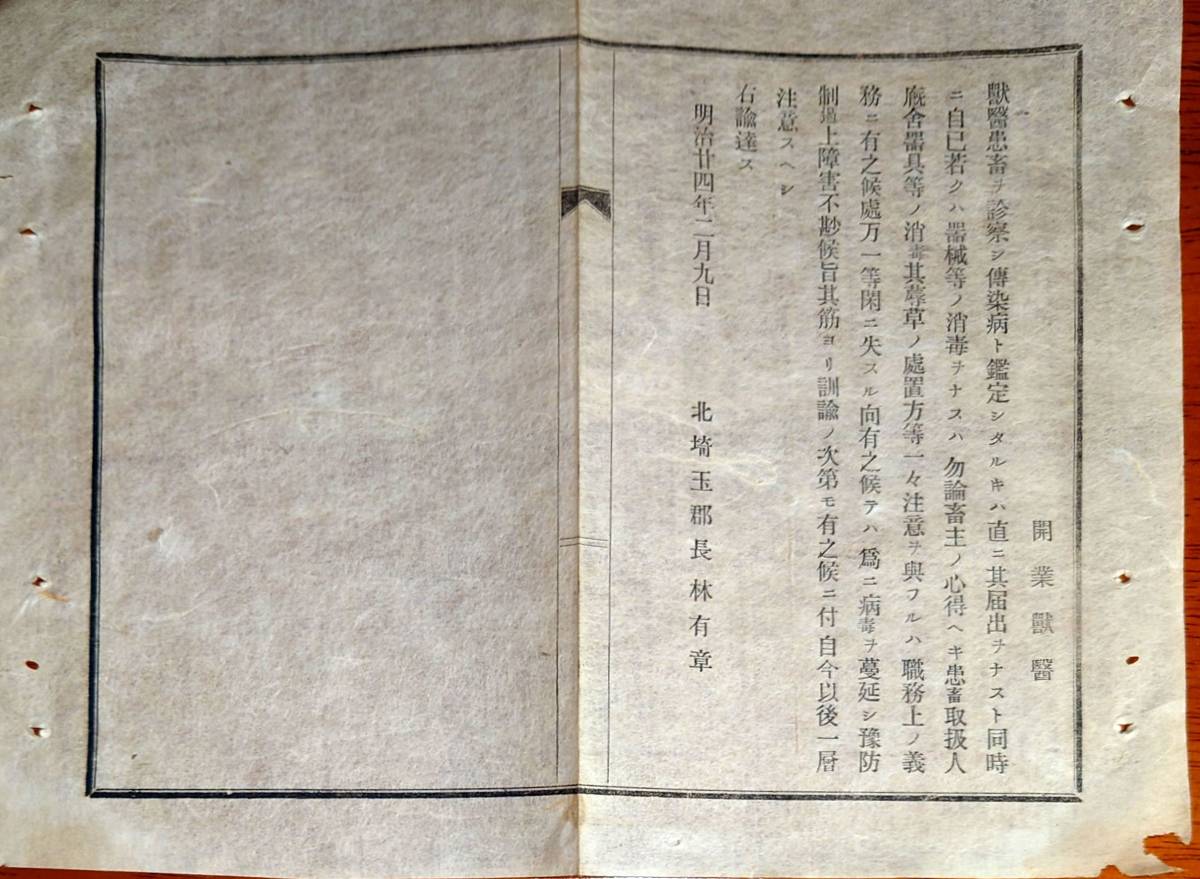 開業獸醫
獸醫患畜ヲ診察シ傳染病ト鑑定シタルキハ直ニ其届出ヲナスト同時
ニ自已若クハ器械等ノ消毒ヲナスハ勿論畜主ノ心得ヘキ患畜取扱人
厩舍器具等ノ消毒其蓐草ノ處置方等一々注意ヲ與フルハ職務上ノ義
務ニ有之候處万一等閑ニ失スル向有之候テハ爲ニ病毒ヲ蔓延シ豫防
制遏上障害不尠候旨其筋ヨリ訓諭ノ次第モ有之候ニ付自今以後一層
注意スヘシ
右諭達ス
明治廿四年二月九日
北埼玉郡長林有章